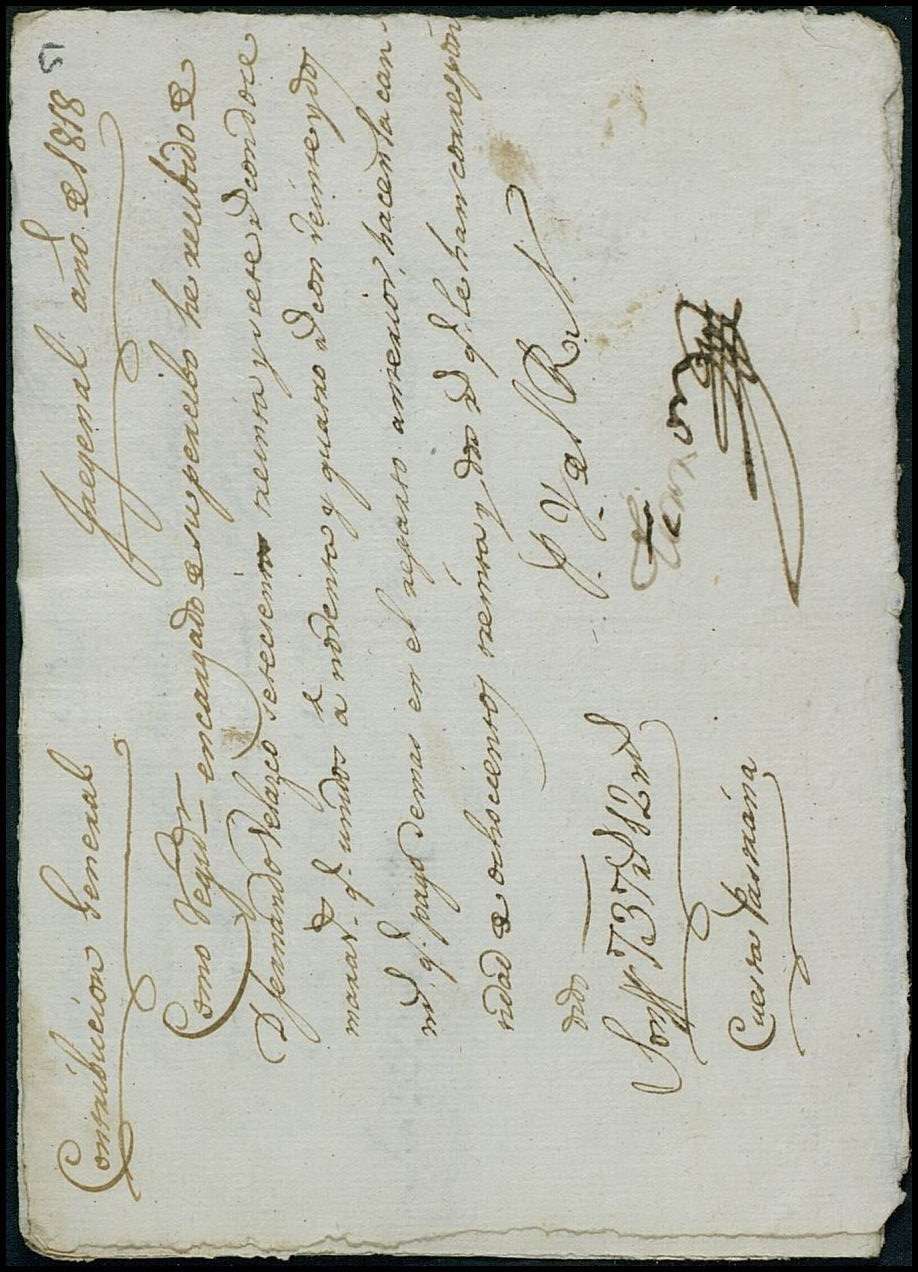 15
Contribucion General fregenal. año. de 1818
Como Regidor encargado de su percibo he recibido de
D. Fernando Velazco setecientos treinta y siete rs. con doce
marav. q. unidos a noventa y quatro rs. con veinte y dos
m. q. pagó demas en el reparto anterior, hacen la can-
tidad de ochocientos treinta y dos rs. q. le han correspon-
dido
Son 737 rs. 12 ms.
Cuesta Jasmina